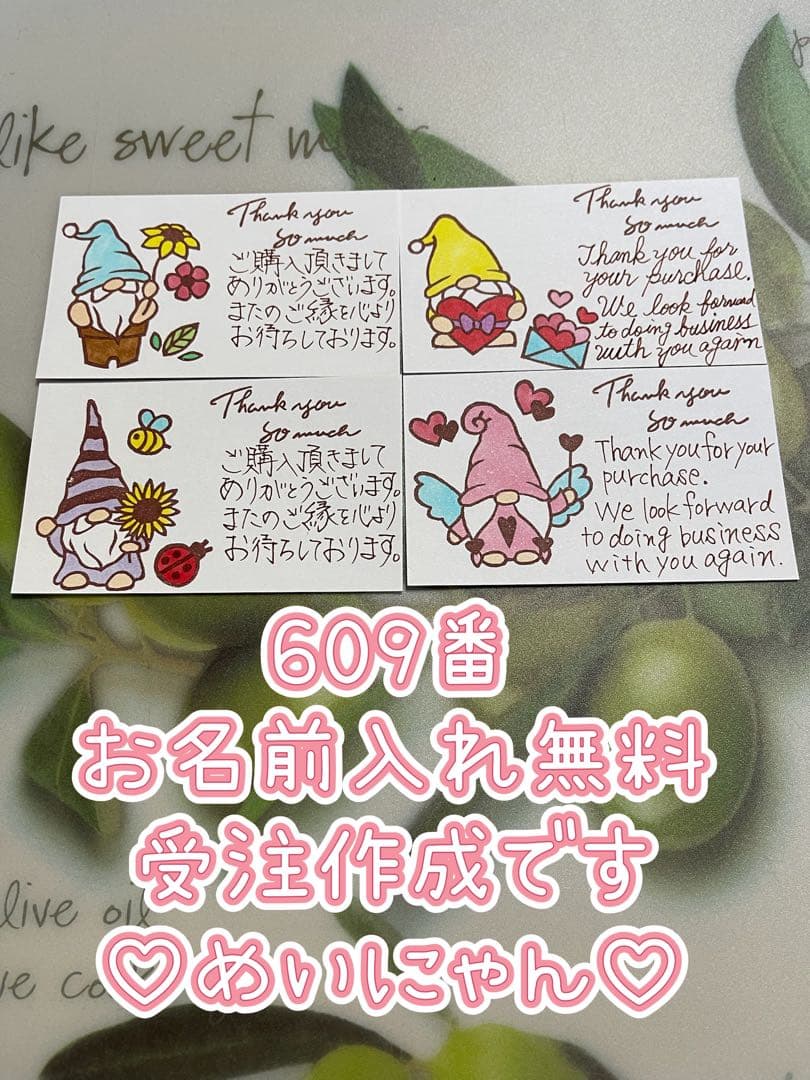 like sweet
Thank you
so much
ご購入頂きまして
ありがとうございます。
またのご縁を心より
お待ちしております。
Thank you
so much
Thank you for
your purchase.
We look forward
to doing business
with you again
Thank you
so much
ご購入頂きまして
ありがとうございます。
またのご縁を心より
お待ちしております。
Thank you
so much
Thank you for your
purchase.
We look forward
to doing business
with you again.
609番
お名前入れ無料
受注作成です
♡めいにゃん♡
live oil
ve co